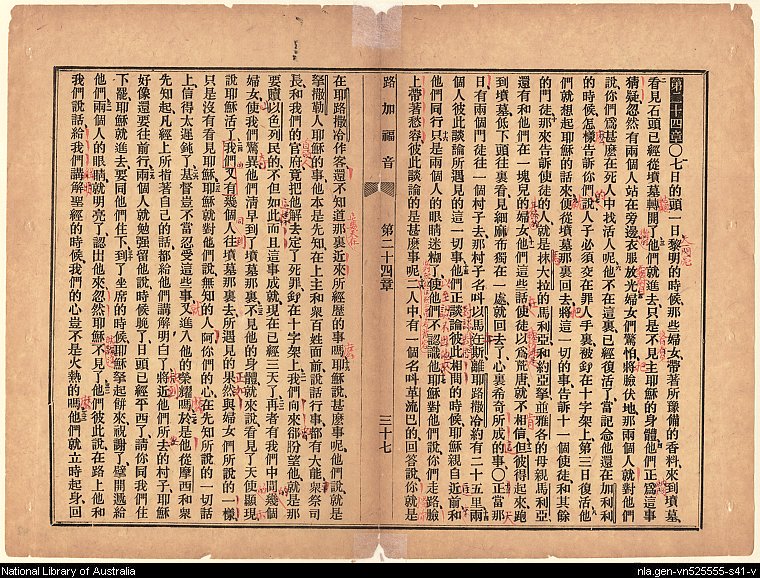 第二十四章〇七日的頭一日黎明的時候那些婦女帶著所豫備的香料來到墳墓、
看見石頭已經從墳墓轉開了他們就進去只是不見主耶穌的身體他們正爲這事
猜疑忽然有兩個人站在旁邊衣服放光婦女們驚怕將臉伏地那兩個人就對他們
說你們爲甚麼在死人中找活人呢他不在這裏已經復活了當記念他還在加利利
的時候怎樣告訴你們說人子必須交在罪人手裏被釘在十字架上第三日復活他
們就想起耶穌的話來便從墳墓那裏回去將這一切的事告訴十一個使徒和其餘
的門徒那來告訴使徒的人就是抹大拉的馬利亞和約亞拏並雅各的母親馬利亞、
還有和他們在一塊兒的婦女他們這些話使徒以爲荒唐就不相信但彼得起來跑
到墳墓低下頭往裏看見細麻布獨在一處就回去了心裏希奇所成的事〇正當那
日有兩個門徒往一個村子去那村子名叫以馬忤斯離耶路撒冷約有二十五里兩
個人彼此談論所遇見的這一切事他們正談論彼此相問的時候耶穌親自近前和
他們同行只是兩個人的眼睛迷糊了使他們不認識他耶穌對他們說你們走路臉
上帶著愁容彼此談論的是甚麼事呢二人中有一個名叫革流巴的回答說你就是
路加福音 第二十四章 三十七
在耶路撒冷作客還不知道那裏近來所經歷的事嗎耶穌說甚麼事呢他們說就是
拏撒勒人耶穌的事他本是先知在上主和衆百姓面前說話行事都有大能衆祭司
長和我們的官府竟把他解去定了死罪釘在十字架上我們向來卻盼望他就是那
要贖以色列民的不但如此而且這事成就現在已經三天了再者有我們中間幾個
婦女使我們驚異他們清早到了墳墓那裏不見他的身體就來說看見了天使顯現
說耶穌活了我們又有幾個人往墳墓那裏去所遇見的果然與婦女們所說的一樣、
只是沒有看見耶穌耶穌就對他們說無知的人阿你們的心在先知所說的一切話
上信得太遲鈍了基督豈不當忍受這些事又進入他的榮耀嗎於是他從摩西和衆
先知起凡經上所指著自己的話都給他們講解明白了將近他們所去的村子耶穌
好像還要往前行兩個人就勉强留他說時候晩了日頭已經平西了請你同我們住
下罷耶穌就進去要同他們住下到了坐席的時候耶穌拏起餅來祝謝了擘開遞給
他們兩個人的眼睛就明亮了認出他來忽然耶穌不見了他們彼此說在路上他和
我們說話給我們講解聖經的時候我們的心豈不是火熱的嗎他們就立時起身回
National Library of Australia
nla.gen-vn525555-s41-v